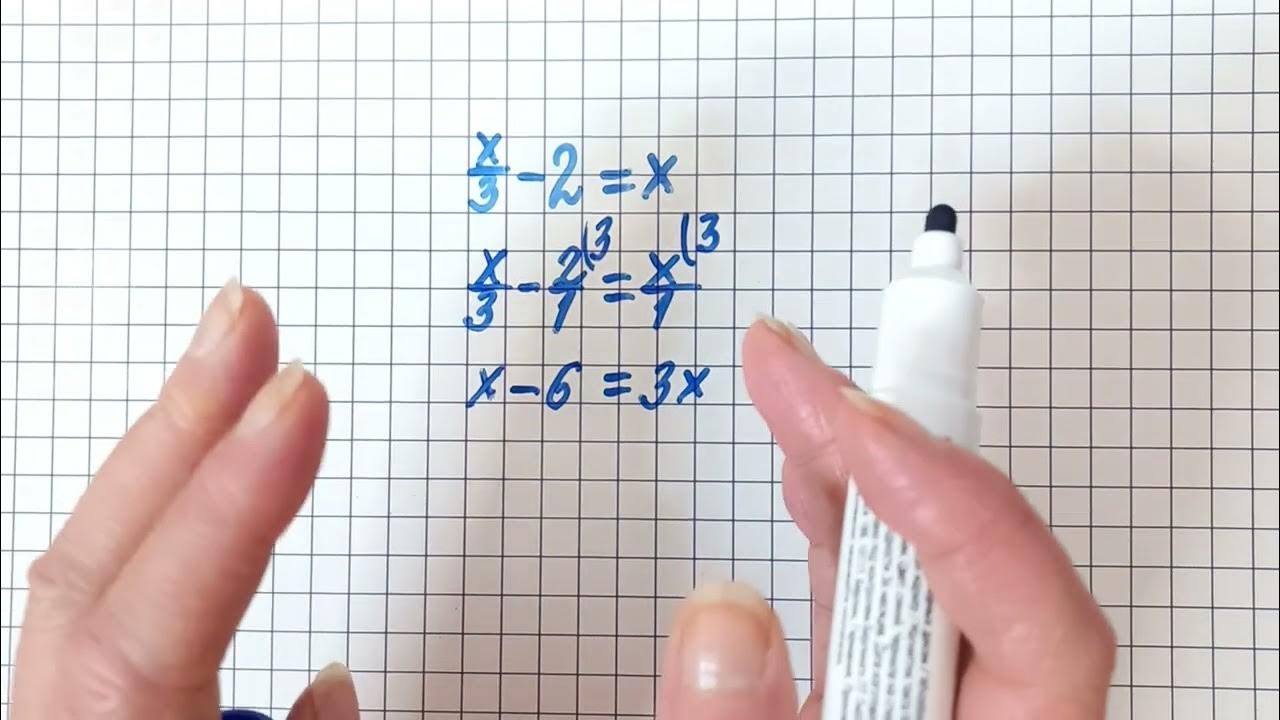 x/3 - 2 = x
x/3 - 2/1 (3 = x/1 (3
x - 6 = 3x